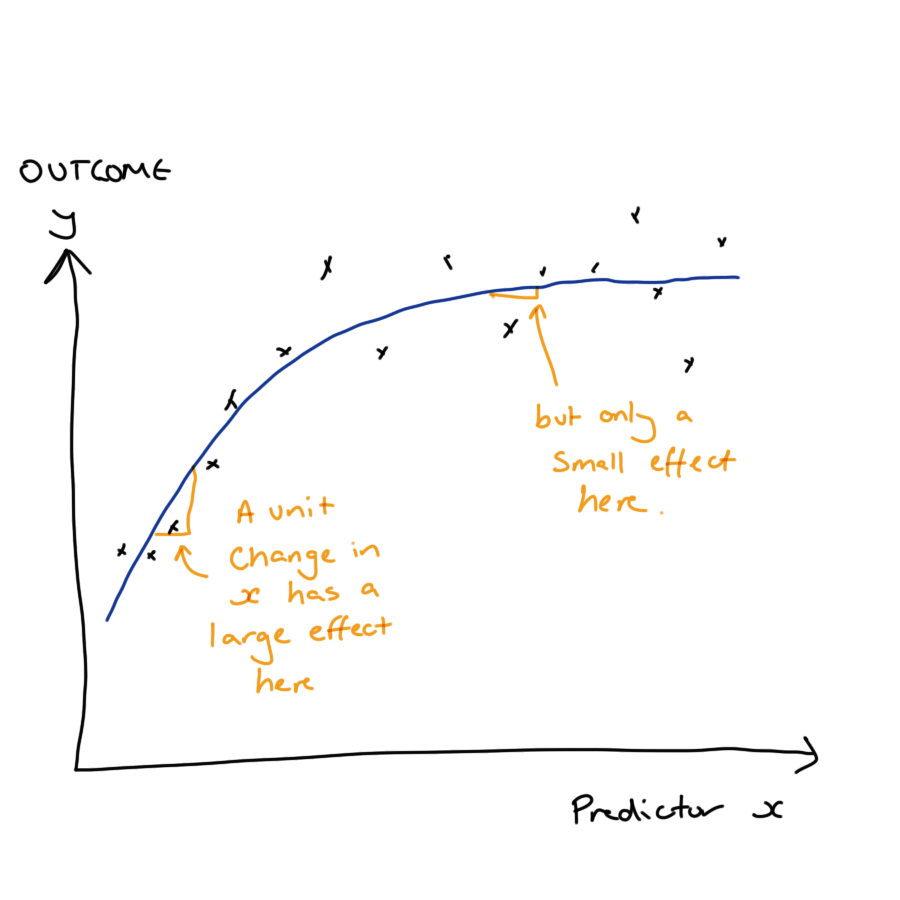 OUTCOME
y
but only a
small effect
here.
A unit
change in
x has a
large effect
here
Predictor x